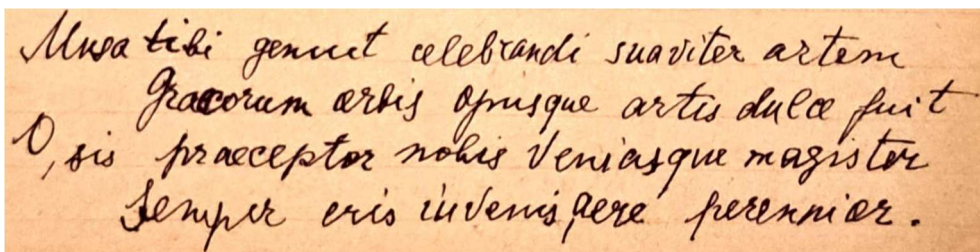 Musa tibi genuit celebrandi suaviter artem
Graecorum orbis opusque artis dulce fuit
O, sis praeceptor nobis Veniasque magister
Semper eris iuvenis, aere perennior.